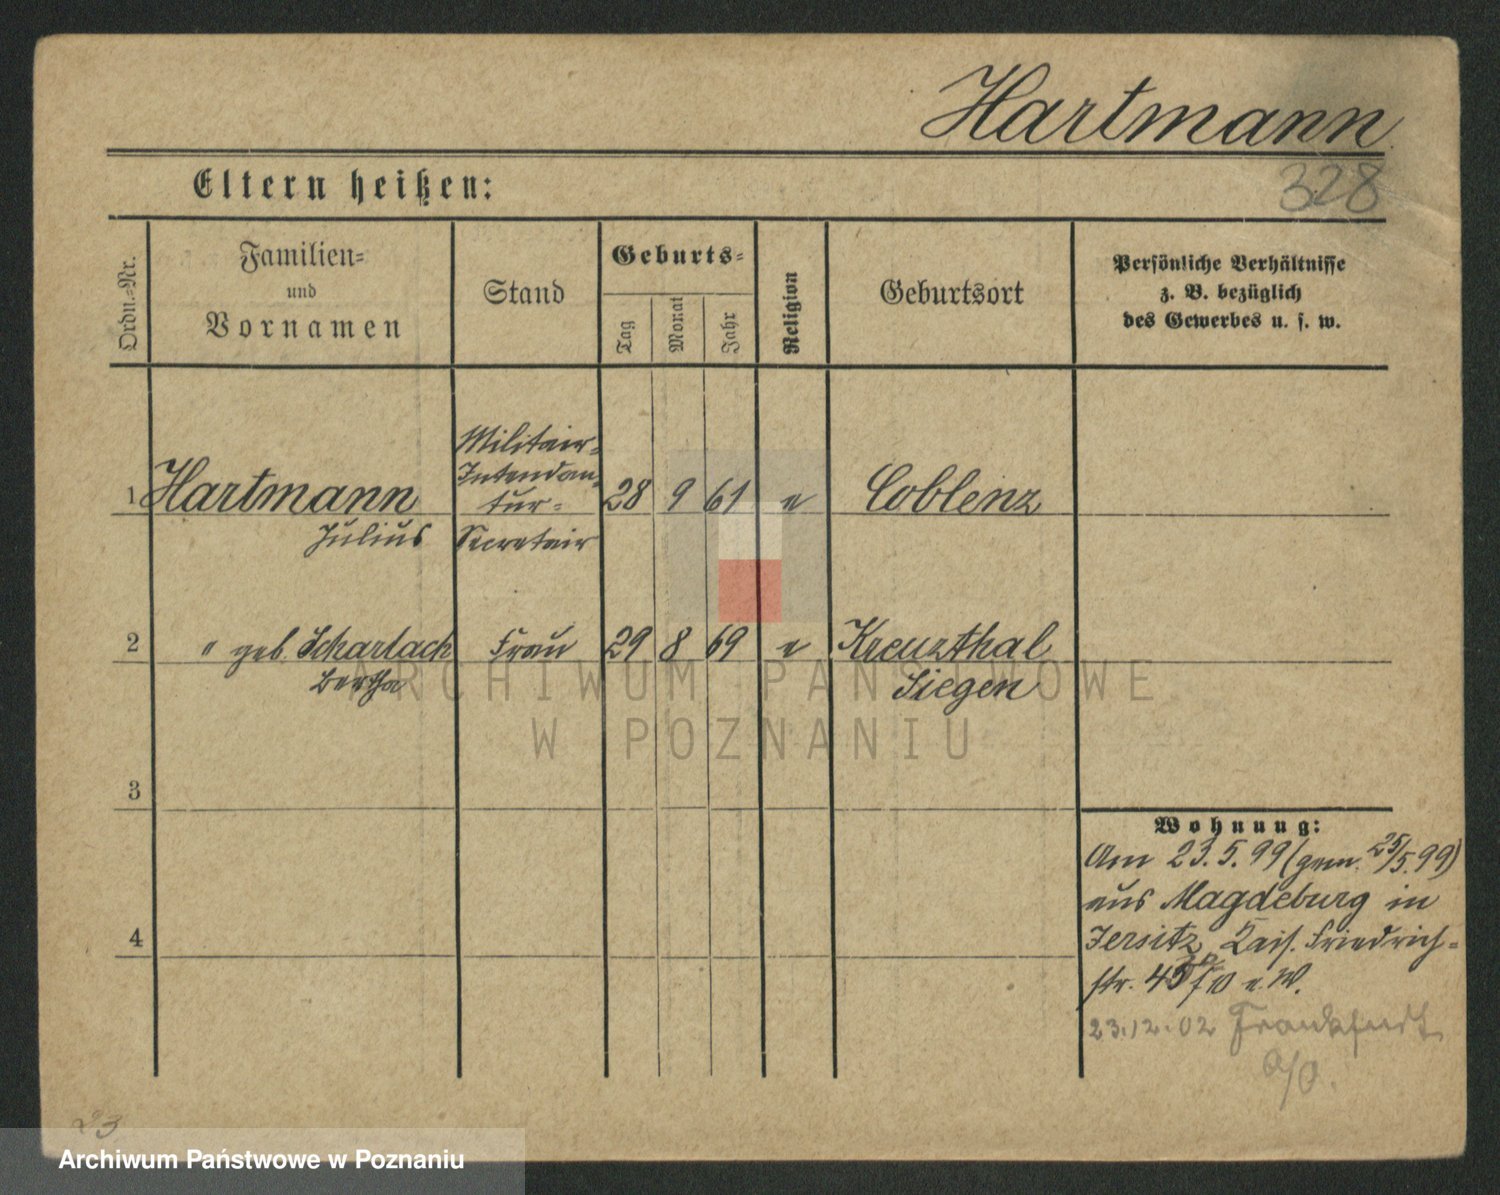 Hartmann
328
Eltern heißen:
Ordn.-Nr.
Familien-
und
Vornamen
Stand
Geburts-
Tag
Monat
Jahr
Religion
Geburtsort
Persönliche Verhältnisse
z. B. bezüglich
des Gewerbes u. s. w.
1 Hartmann
Julius
Militair-
Intendan-
tur-
Secretair
28 9 61 e Coblenz
2 " geb. Scharlach
Bertha
Frau 29 8 69 e Kreuzthal
Siegen
3
4
Wohnung:
Am 23.5.99 (gem. 25/5.99)
aus Magdeburg in
Jersitz, Kais. Friedrich-
str. 45 e. W.
23.12.02 Frankfurt
a/O.
23
ARCHIWUM PAŃSTWOWE
W POZNANIU
Archiwum Państwowe w Poznaniu